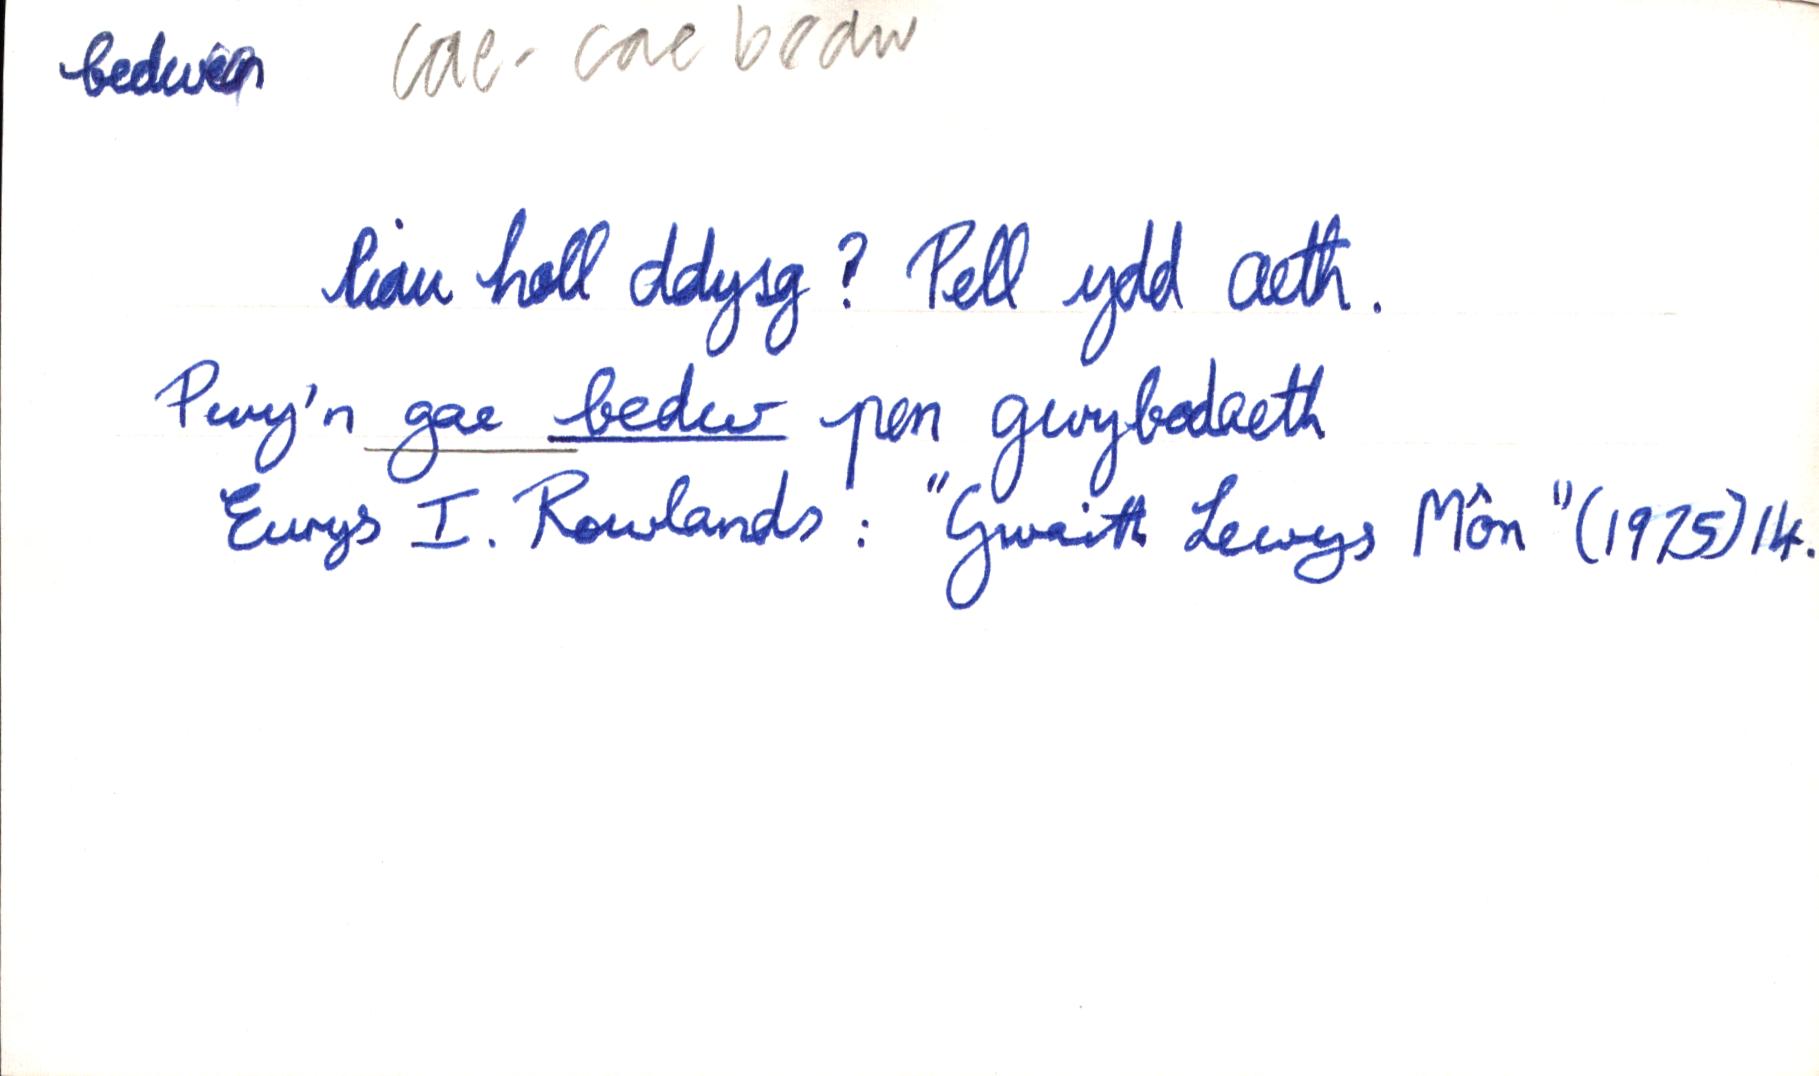 bedwen cae - cae bedw
liau holl ddysg? Pell ydd aeth.
Pwy'n gae bedw pen gwybodaeth
Eurys I. Rowlands: "Gwaith Lewys Môn" (1975) 14.